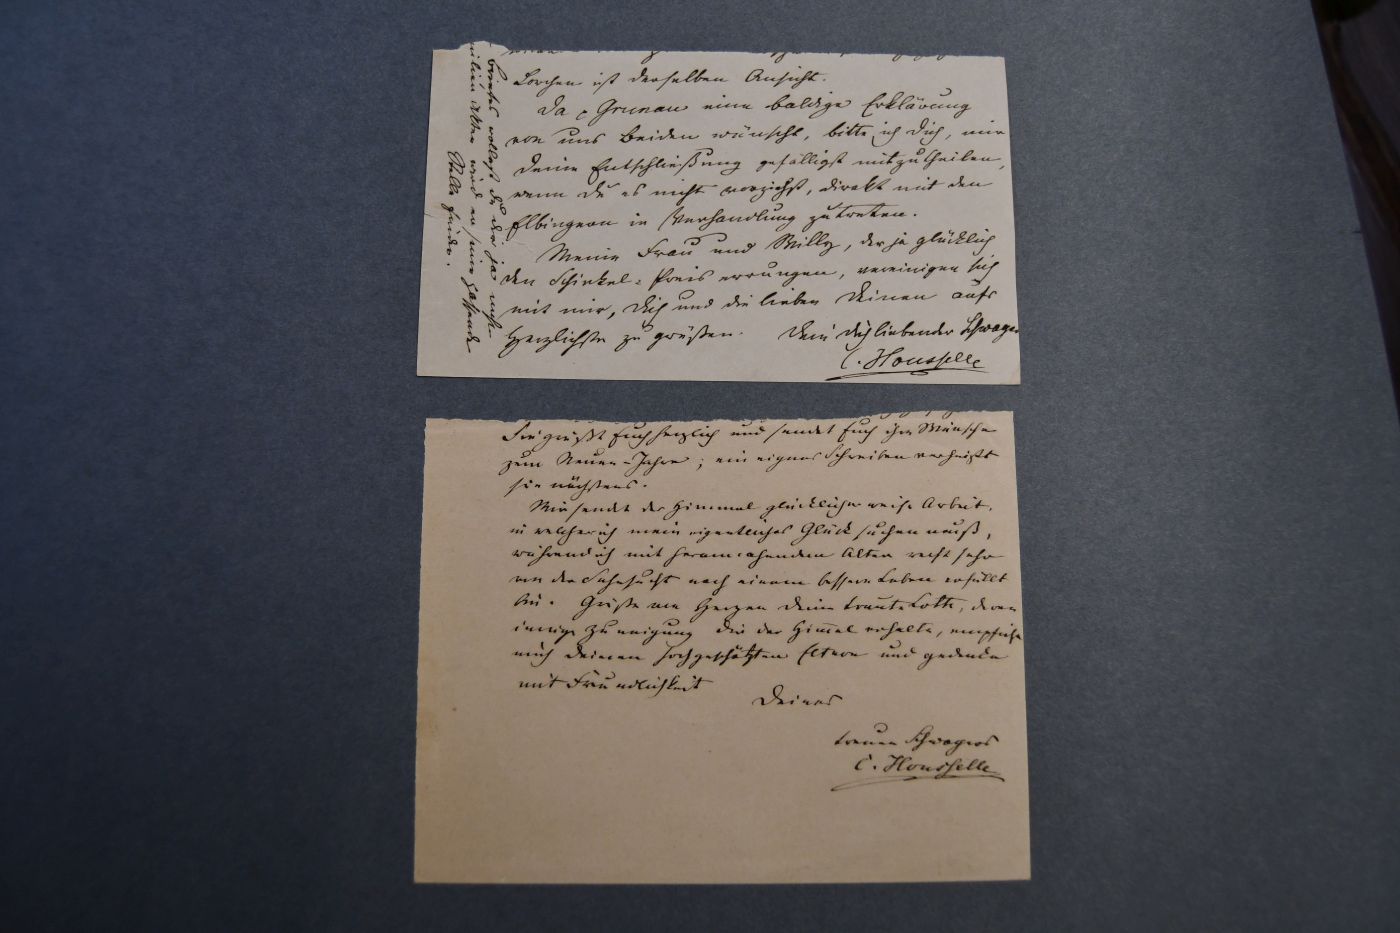 Lorchen ist derselben Ansicht.
Da Grunau eine baldige Erklärung
von uns Beiden wünscht, bitte ich Dich, mir
Deine Entschließung gefälligst mitzutheilen,
wenn Du es nicht vorziehst, direkt mit den
Elbingern in Verhandlung zu treten.
Meine Frau und Willy, der ja glücklich
den Schinkel-Preis errungen, vereinigen sich
mit mir, Dich und die lieben Deinen aufs
Herzlichste zu grüßen. Dein Dich liebender Schwager
C. Housselle
Briefes wollest Du Dir ja nicht
Akten wird er seine passende
Stelle finden.
Sie grüßt Euch herzlich und sendet Euch ihre Wünsche
zum Neuen-Jahre; ein eignes Schreiben verheißt
sie nächstens.
Mir sendet der Himmel glücklicher weise Arbeit,
in welcher ich mein eigentliches Glück suchen muß,
während ich mit herannahendem Alter recht sehr
von der Sehnsucht nach einem bessern Leben erfüllt
bin. Grüße von Herzen Deine traute Lotte, deren
innige Zuneigung Dir der Himmel erhalte, empfiehl
mich Deinen hochgeschätzten Eltern und gedenke
mit Freundlichkeit
Deines
treuen Schwagers
C. Housselle